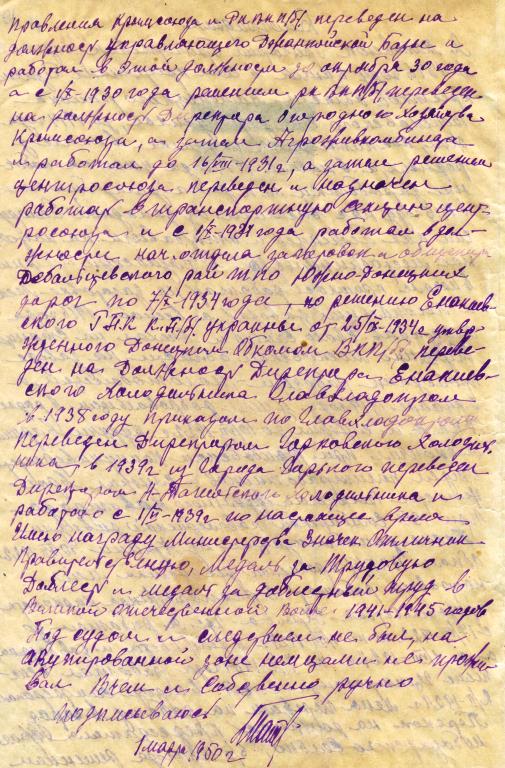 Правления Крымсоюза и РК ВКП/б/, переведен на
должность управляющего Джанкойской Базы и
работал в этой должности до октября 30 года
а с 1/X-1930 года решением РК ВКП/б/ переведен
на должность Директора Огородного Хозяйства
Крымсоюза, а затем Агроживкомбината
и работал до 16/VIII-1931 г, а затем решением
центросоюза переведен и назначен
работать в транспортную секцию цент-
росоюза и с 1/X-1931 года работал в дол-
жности нач. отдела заготовок и
Дебальцевского рай ТПО Южно-Донецких
дорог по 7/X-1934 года, по решению Енакиев-
ского ГПК К.П./б/ Украины от 25/IX-1934 г утвер-
жденного Донецким Обкомом ВКП/б/ переве-
ден на Должность Директора Енакиев-
ского Холодильника Главхладопром
В 1938 году приказом по Главхладопрому
переведен Директором Харьковского Холодиль-
ника, в 1939 г из Города Харькова переведен
Директором Н-Тагильского Холодильника и
работаю с 1/-1939 г по настоящее время
Имею награду Министерства Значек Отличник
Правительственную, Медаль за Трудовую
Доблесть и медаль за доблестный труд в
Великой отечественной Войне 1941-1945 годов
Под судом и следствием не был, на
акупированной зоне немцами не прожи-
вал В чем и Собственно ручно
подписываюсь
1 марта 1950 г